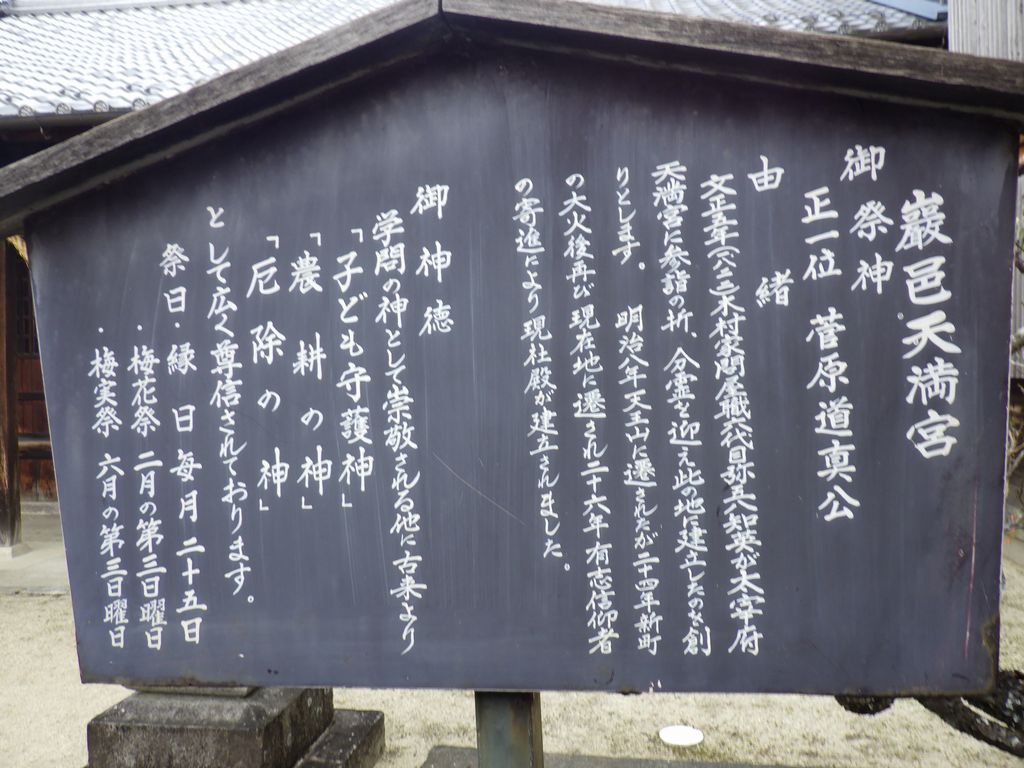 巖邑天満宮
御祭神
正一位 菅原道真公
由緒
文正五年(八二二)木村家問屋職六代目弥五智英が太宰府
天満宮に参詣の折、分霊を迎え此の地に建立したのを創
りとします。 明治八年天王山に遷されたが二十四年新町
の大火後再び現在地に遷され二十六年有志信仰者
の寄進により現社殿が建立されました。
御神徳
学問の神として崇敬される他に古来より
「子ども守護神」
「農耕の神」
「厄除の神」
として広く尊信されております。
祭日・縁日 毎月二十五日
・梅花祭 二月の第三日曜日
・梅実祭 六月の第三日曜日